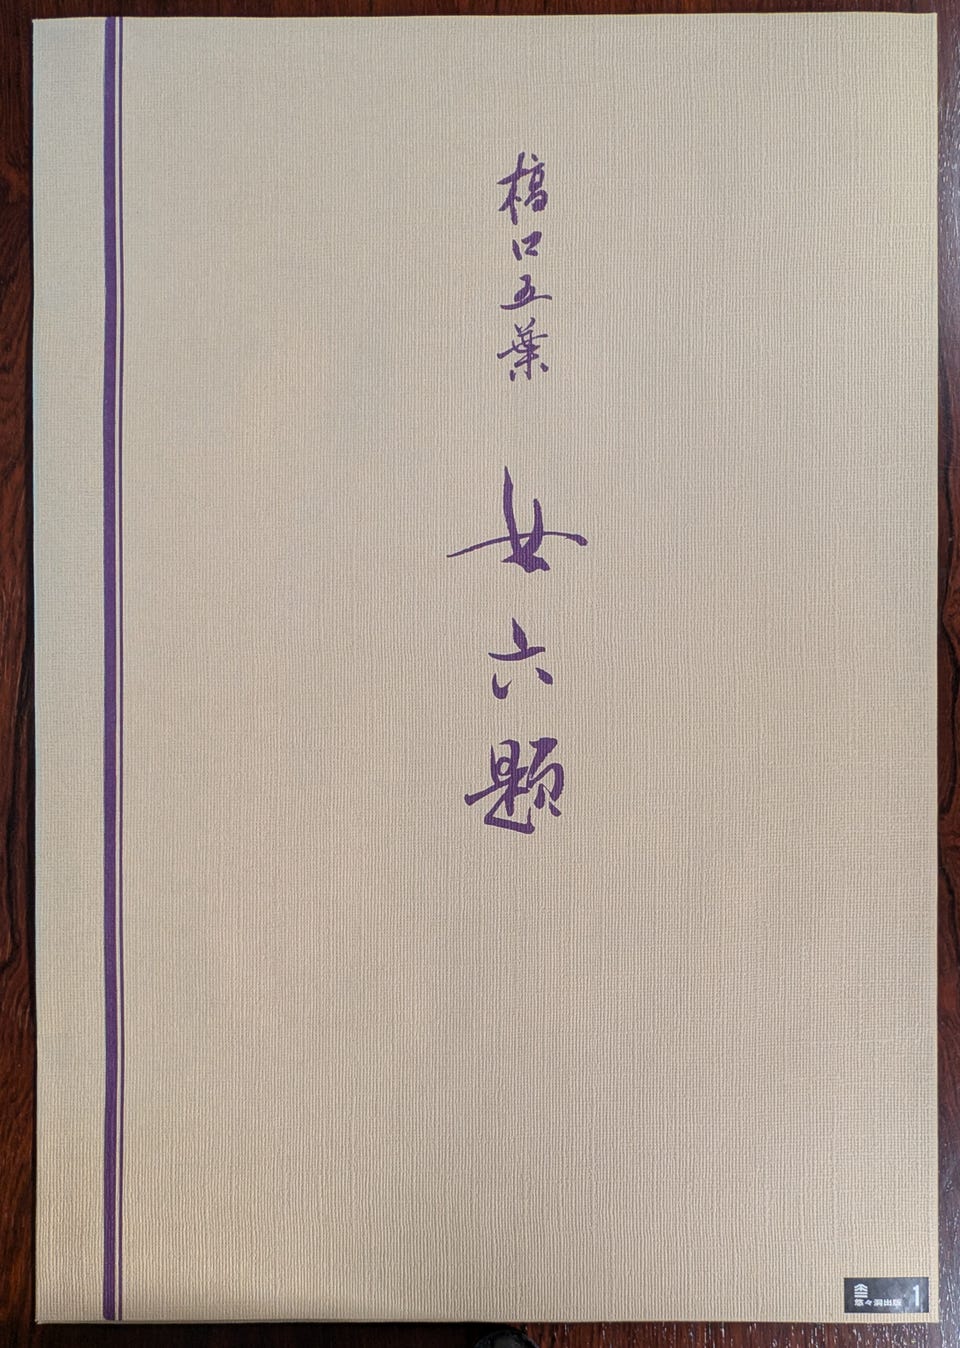 橋口五葉
女六題
悠々洞出版 1